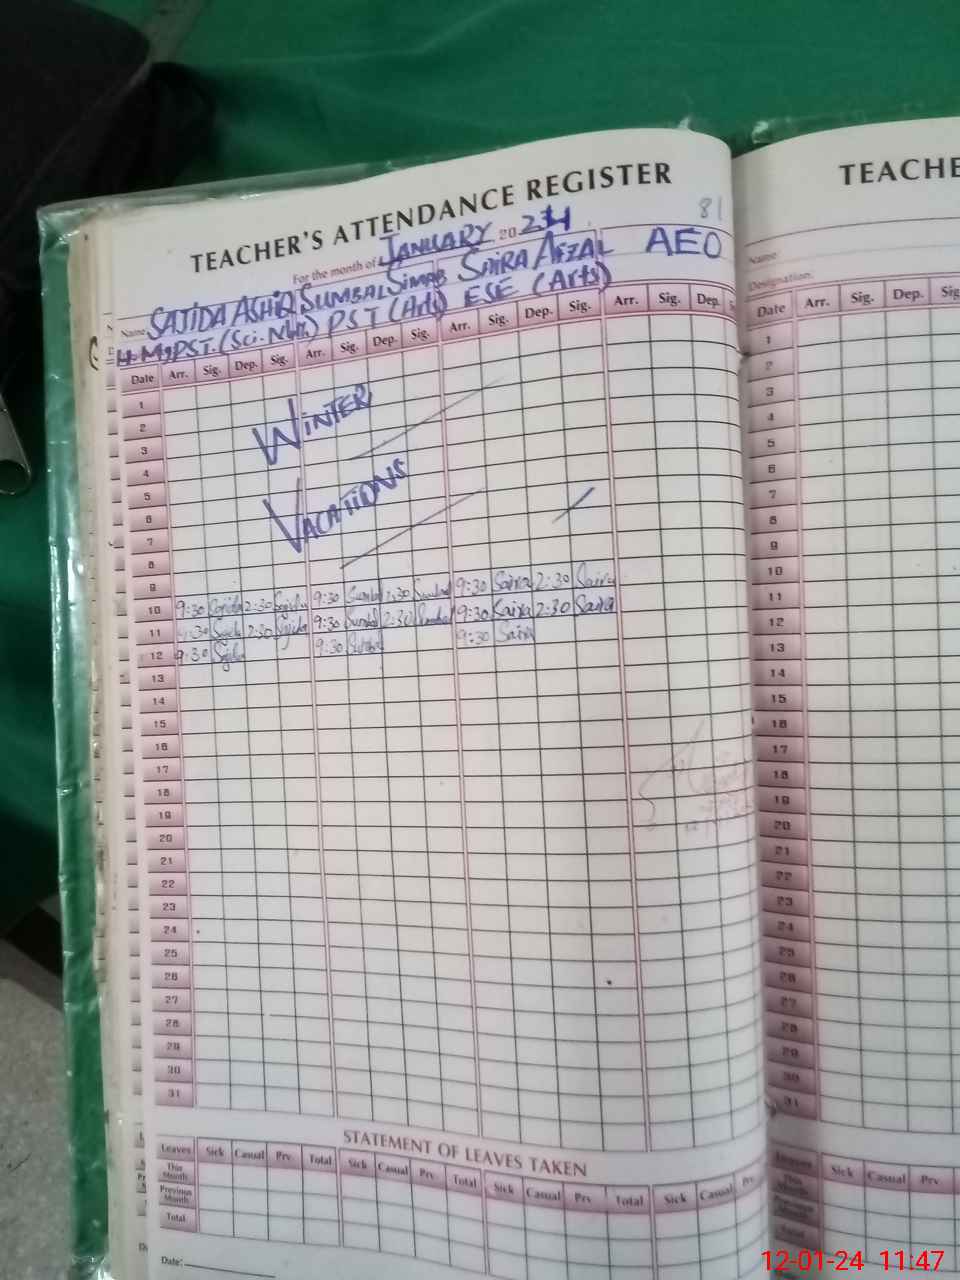 TEACHER'S ATTENDANCE REGISTER
81
For the month of JANUARY 2024
Name SAJIDA ASHIQ SUMBAL SIMAB SAIRA AFZAL AEO
PST. (Sci. Mth.) PST (Arts) ESE (Arts)
Date Arr. Sig. Dep. Sig. Arr. Sig. Dep. Sig. Arr. Sig. Dep. Sig. Arr. Sig. Dep.
1
2
WINTER
3
4
5
VACATIONS
6
7
8
9
10 9:30 Sajida 2:30 Sajida 9:30 Sumbal 2:30 Sumbal 9:30 Saira 2:30 Saira
11 9:30 Sajida 2:30 Sajida 9:30 Sumbal 2:30 Sumbal 9:30 Saira 2:30 Saira
12 9:30 Sajida 9:30 Sumbal 9:30 Saira
13
14
15
16
17
18
19
20
21
22
23
24
25
26
27
28
29
30
31
STATEMENT OF LEAVES TAKEN
Leaves Sick Casual Prv Total Sick Casual Prv Total Sick Casual Prv Total Sick Casual
This Month
Previous Month
Total
Date:
TEACHE
Name:
Designation:
Date Arr. Sig. Dep.
1
2
3
4
5
6
7
8
9
10
11
12
13
14
15
16
17
18
19
20
21
22
23
24
25
26
27
28
29
30
31
Leaves Sick Casual Prv
This Month
Previous Month
12-01-24 11:47